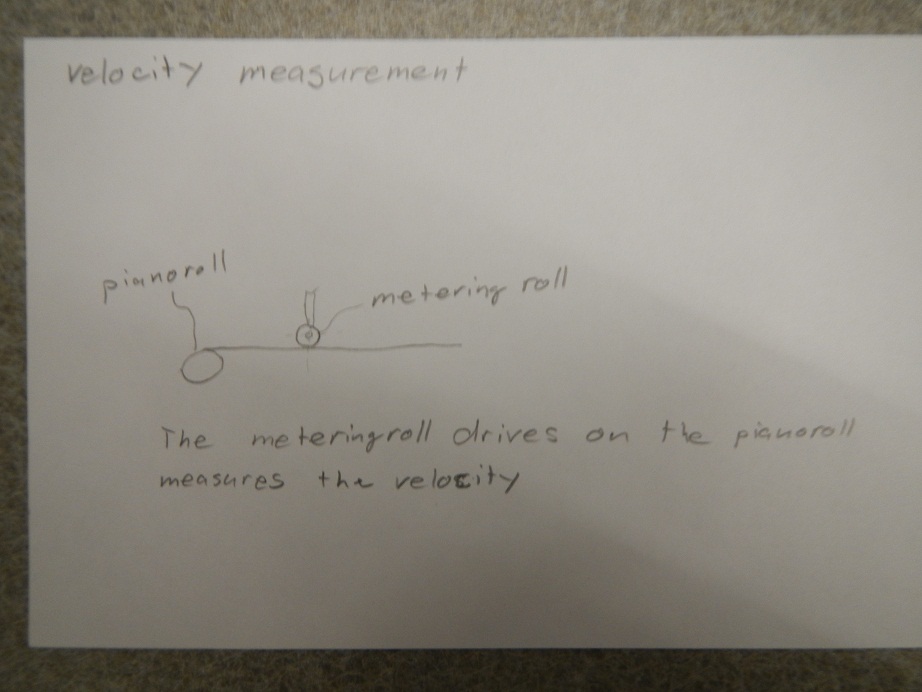 velocity measurement
pianoroll
metering roll
The meteringroll drives on the pianoroll
measures the velocity